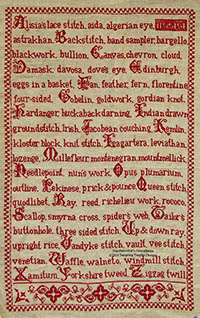 Alsatia's lace stitch, aida, algerian eye,
astrakhan. Backstitch, band sampler, bargello
blackwork, bullion, Canvas, chevron, cloud,
Damask, davosa, dove's eye, Edinburgh,
eggs in a basket, Fan, feather, fern, florentine
four-sided, Gobelin, goldwork, gordian knot,
Hardanger, huckaback darning, Indian drawn
ground stitch, Irish, Jacobean couching, Kremlin
kloster block, knit stitch, Lagartera, leviathan
lozenge, Millefleur, montenegrin, mountmellick
Needlepoint, nun's work, Opus plumarium,
outline, Pekinese, prick & pounce, Queen stitch,
quodlibet, Ray, reed, richelieu work, rococo,
Scallop, smyrna cross, spider's web, Tailor's
buttonhole, three sided stitch, Up & down ray
upright rice, Vandyke stitch, vault, vee stitch
venetian, Waffle, walneto, windmill stitch
Xamitum, Yorkshire tweed, Zigzag twill